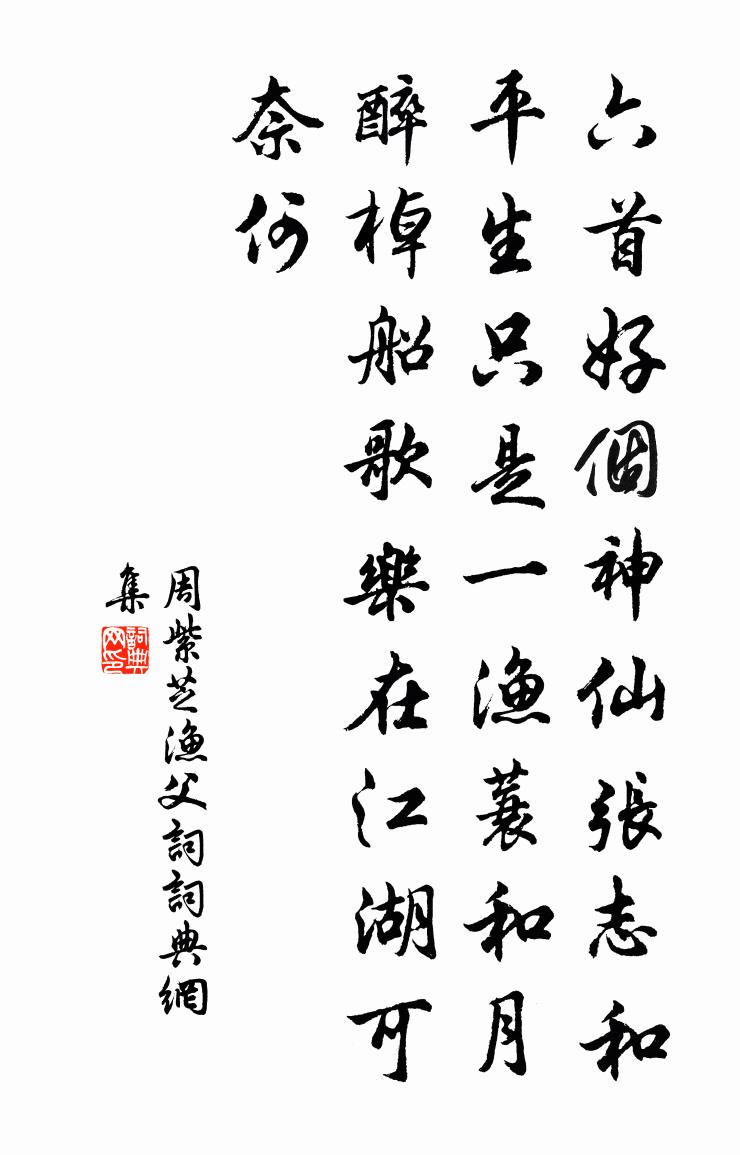 六首好個神仙張志和
平生只是一漁蓑和月
醉棹船歌樂在江湖可
奈何
周紫芝漁父詞詞典網
集
詞典
网印